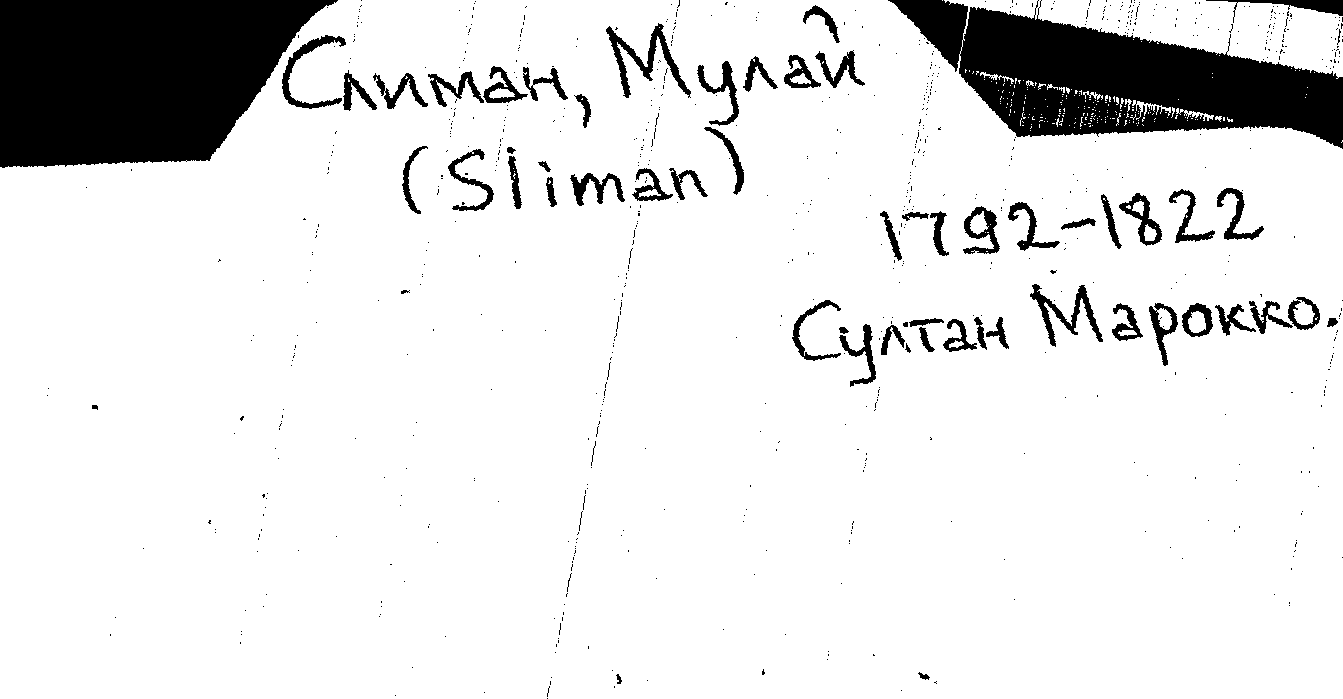 Слиман, Мулай
(Sliman)
1792-1822
Султан Марокко.